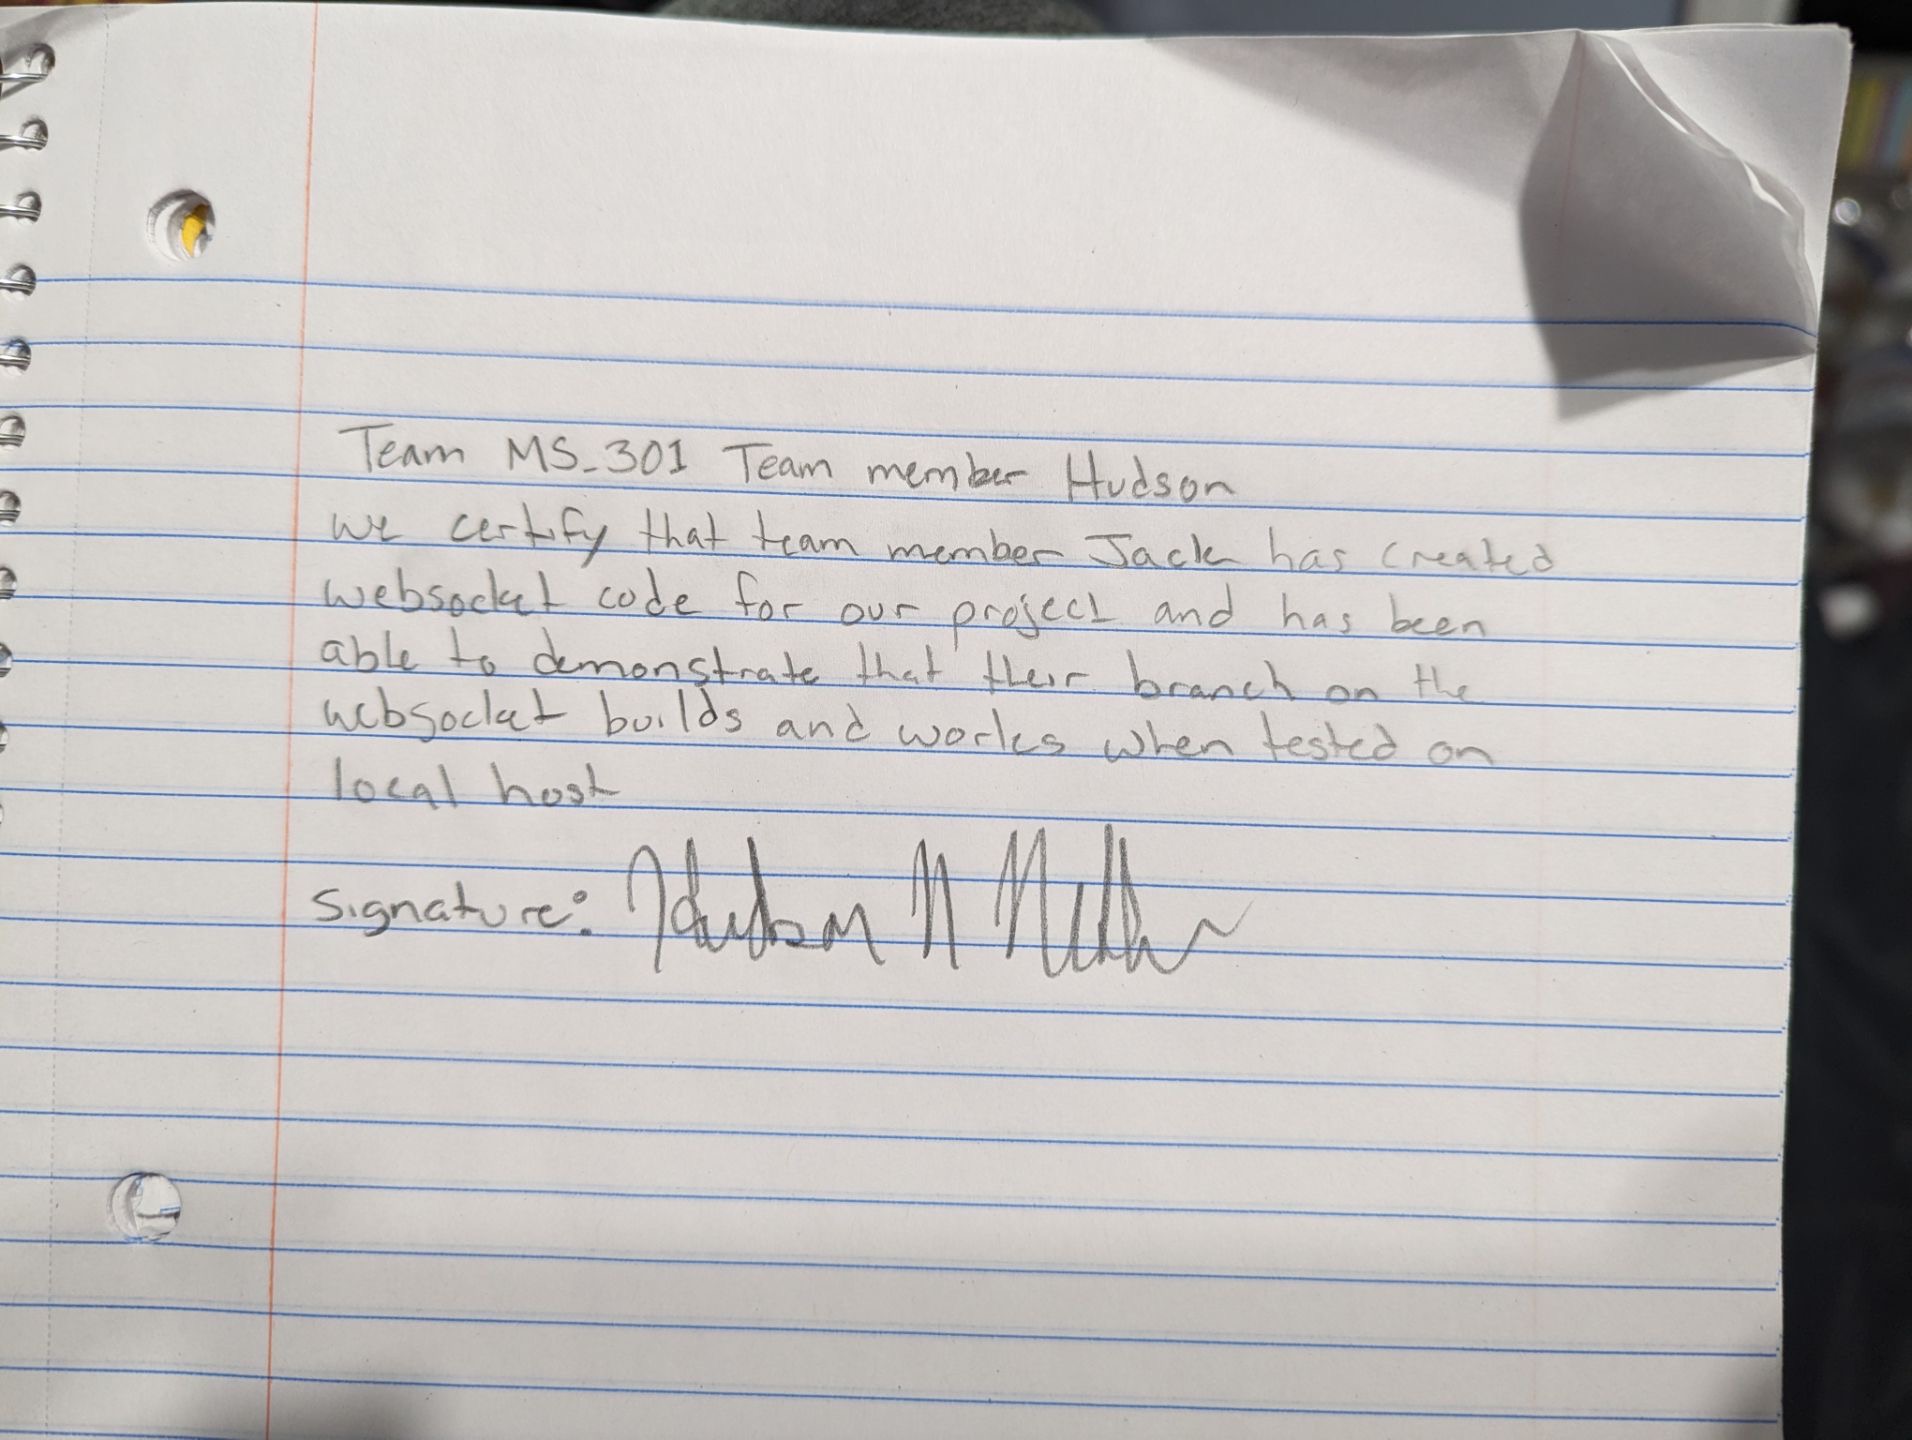 Team MS-301 Team member Hudson
we certify that team member Jack has created
websocket code for our project and has been
able to demonstrate that their branch on the
websocket builds and works when tested on
local host
Signature: Hudson N